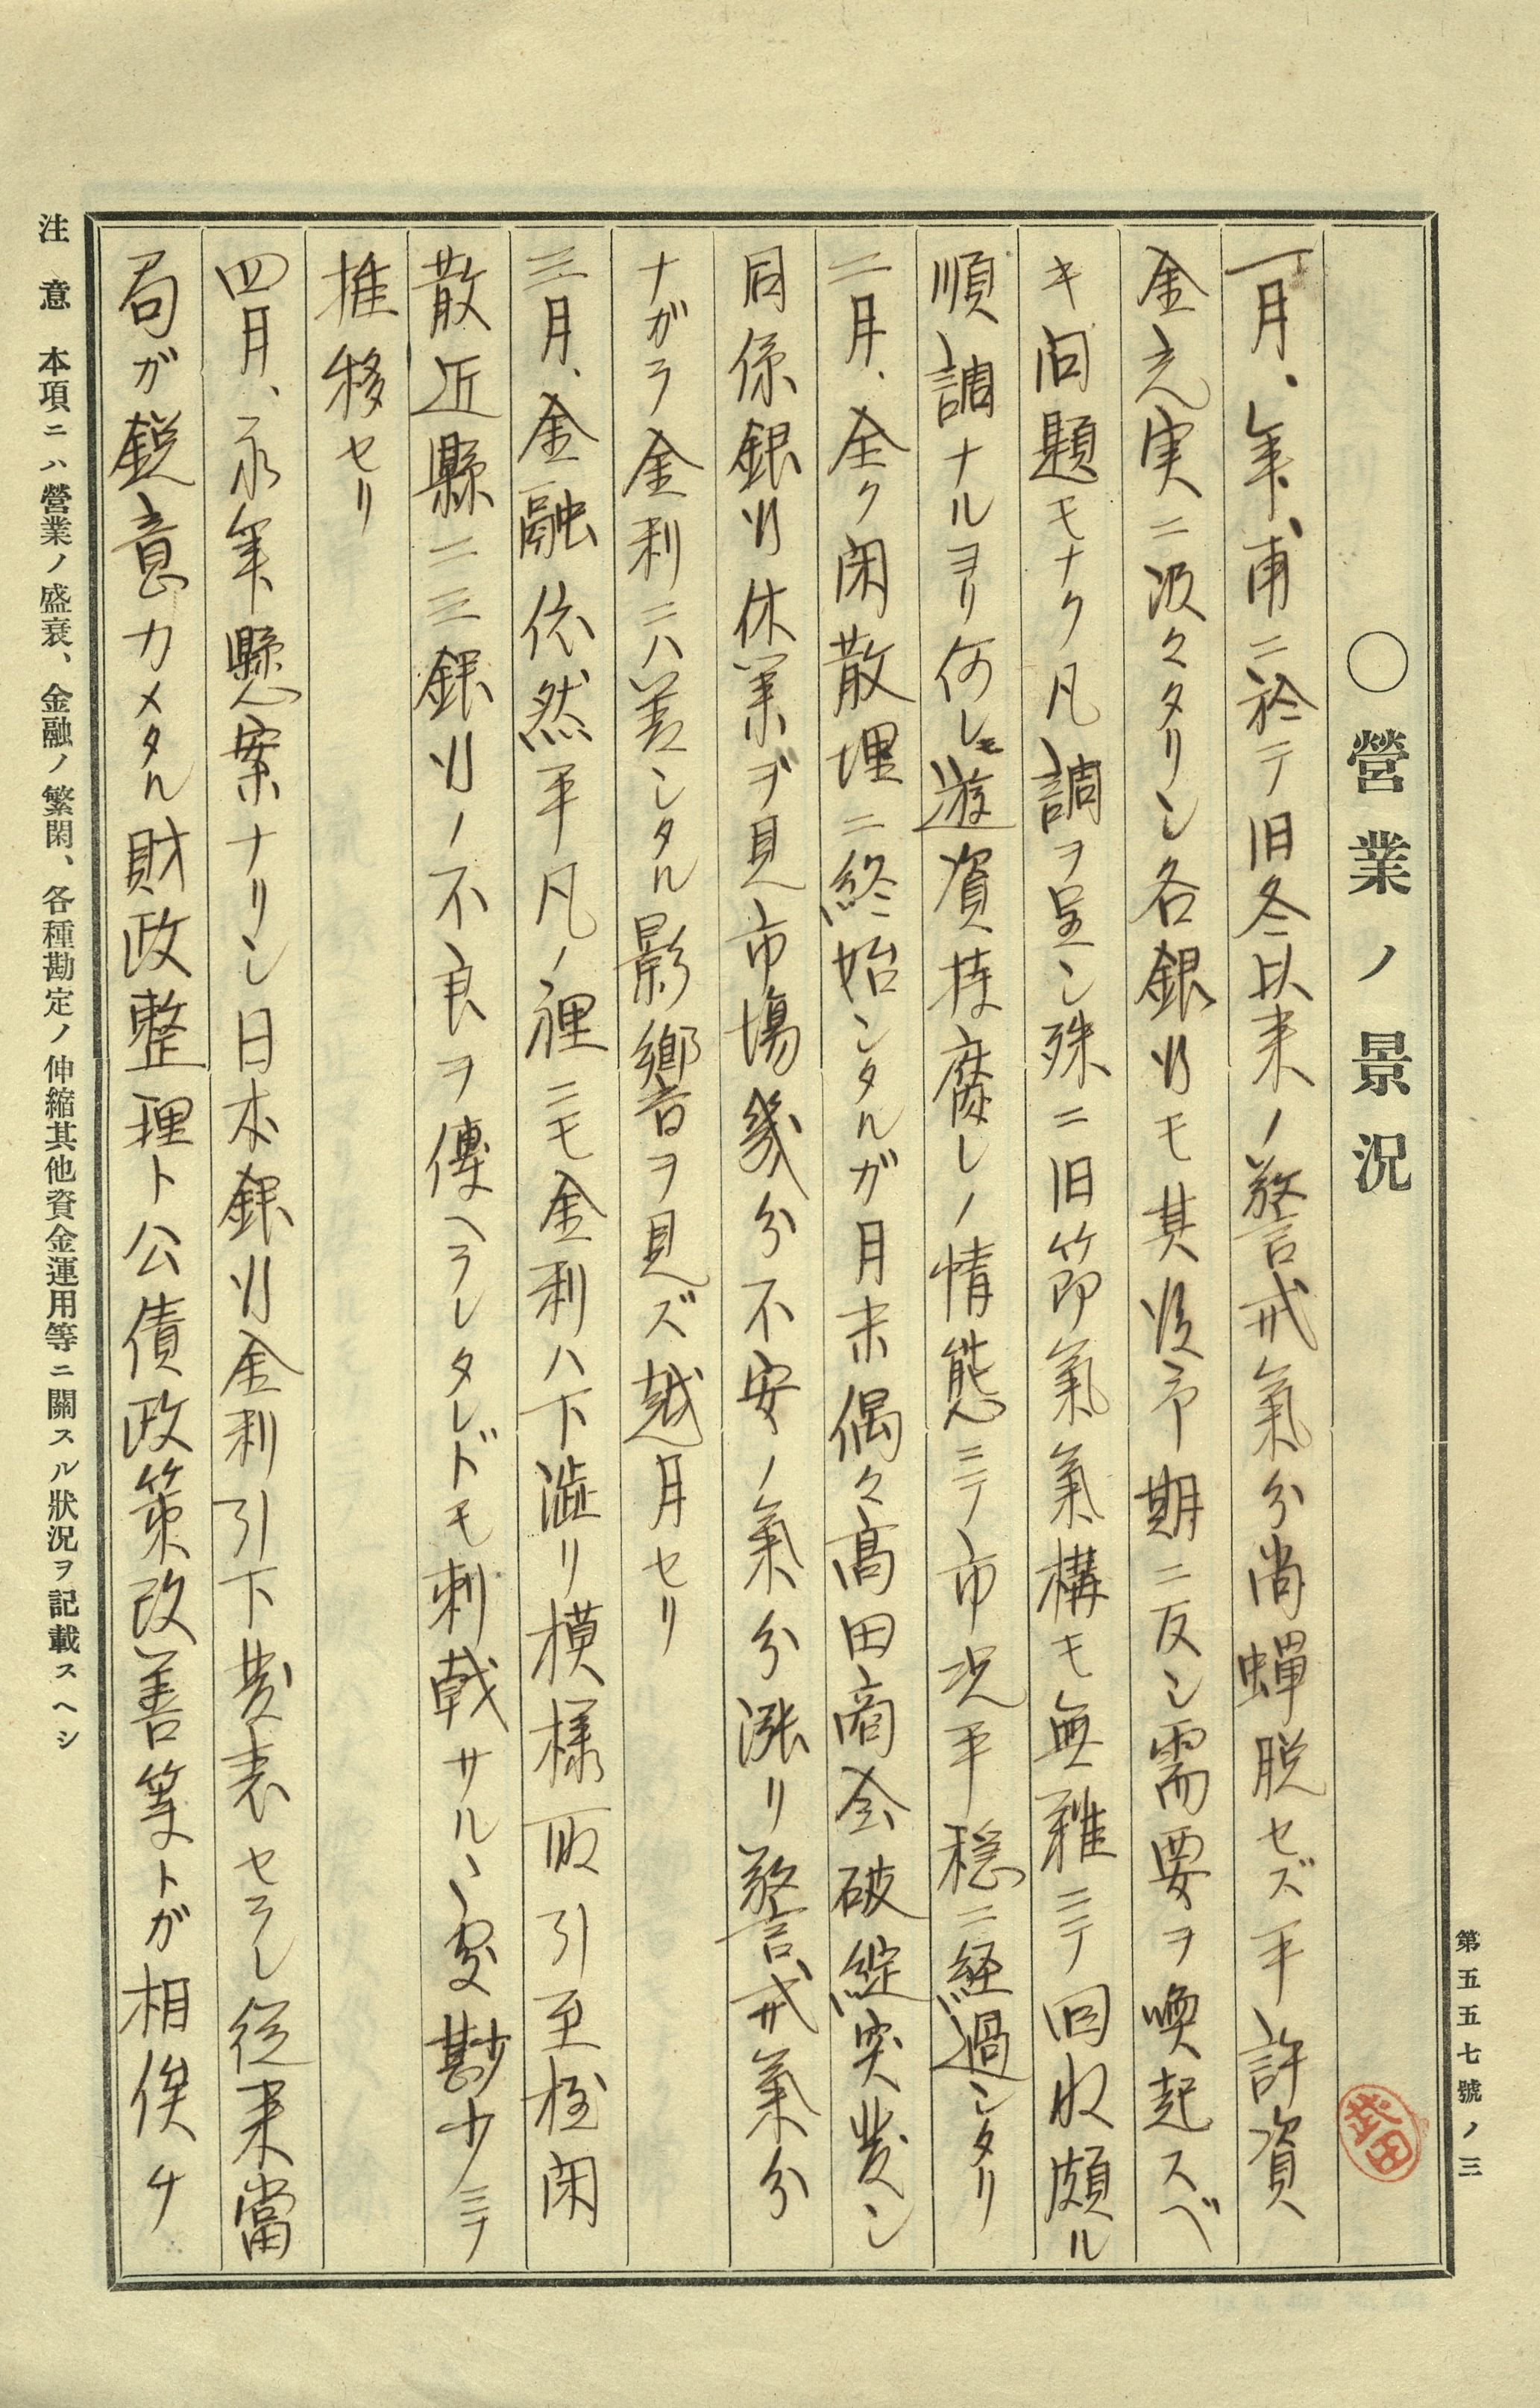 第五五七號ノ三
○營業ノ景況
武田
一月、年甫ニ於テ旧冬以来ノ警戒氣分尚蟬脱セズ手許資
金充実ニ汲々タリシ各銀行モ其後予期ニ反シ需要ヲ喚起スベ
キ問題モナク凡調ヲ呈シ殊ニ旧節氣氣構モ無難ニテ回收頗ル
順調ナルヨリ何レモ遊資持腐レノ情態ニテ市況平穏ニ経過シタリ
二月、全ク閑散埋ニ終始シタルガ月末偶々高田商会破綻突発シ
同係銀行休業ヲ見市場幾分不安ノ氣分漲リ警戒氣分
ナガラ金利ニハ差シタル影響ヲ見ズ越月セリ
三月、金融依然平凡ノ裡ニモ金利ハ下澁リ模様取引至極閑
散近縣二三銀行ノ不良ヲ傳ヘラレタレドモ刺戟サルヽ處尠少ニテ
推移セリ
四月、永年懸案ナリシ日本銀行金利引下発表セラレ従来當
局ガ鋭意力メタル財政整理ト公債政策改善等トガ相俟チ
注意 本項ニハ營業ノ盛衰、金融ノ繁閑、各種勘定ノ伸縮其他資金運用等ニ關スル狀況ヲ記載スヘシ